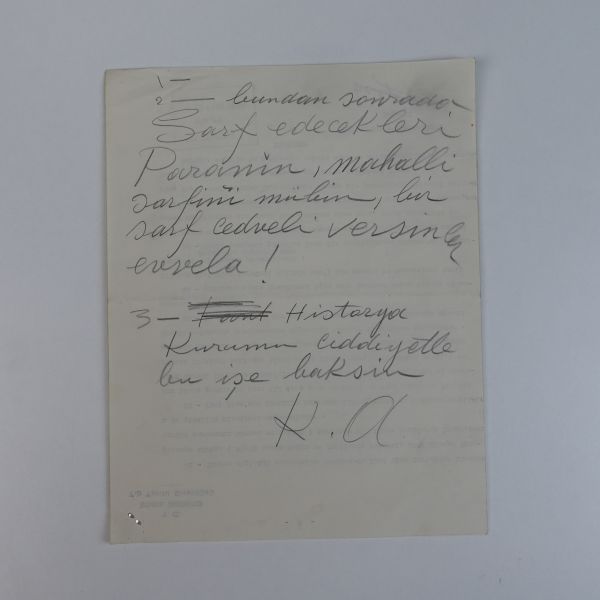 1 —
2 — bundan sonrada
Sarf edecekleri
Paranın, mahalli
sarfini mübin, bir
sarf cedveli versinler
evvela!
3 — Historya
Kurumu ciddiyetle
bu işe baksin
K. A